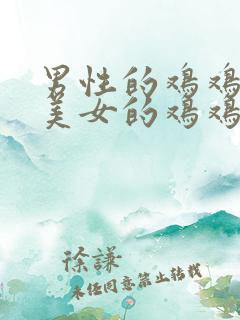 男性的鸡鸡
美女的鸡鸡
徐謙
未经同意禁止转载